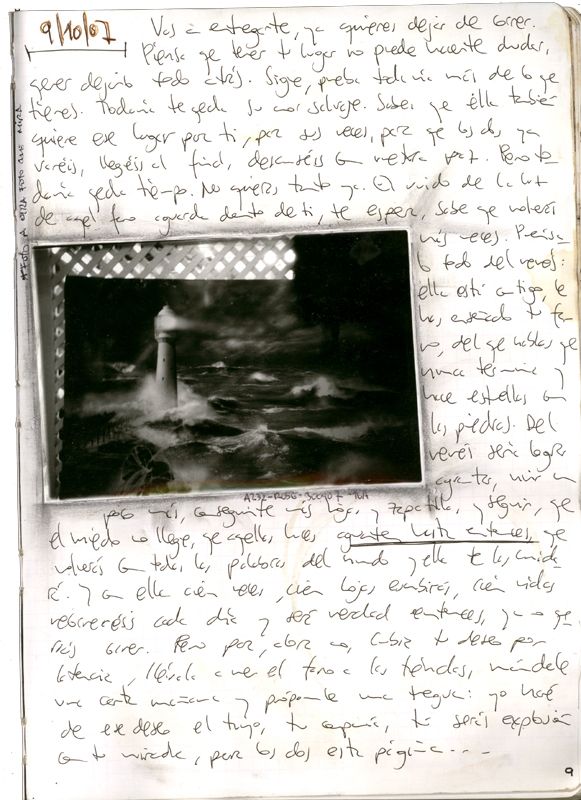 9/10/07
Vas a entregarte, ya quieres dejar de correr.
Piensa que tener tu lugar no puede hacerte dudar,
querer dejarlo todo atrás. Sigue, prueba todavía más de lo que
tienes. Todavía te queda su amor salvaje. Sabes que ella también
quiere ese lugar por ti, por sus veces, por que los dos ya
varéis, lleguéis al final, descanséis con vuestra paz. Pero to
davía queda tiempo. No quieras tanto ya. El ruido de la luz
de aquel faro aguarda dentro de ti, te espera, sabe que volverá
mis veces. Piensa
lo todo del revés:
ella está contigo, le
has enseñado tu fa
ro, del que hablas que
nunca termina y
hace estrellas con
las piedras. Del
revés sería lograr
aguantar, vivir un
poco más, conseguirte más hojas y zapatillas, y seguir, que
el miedo no llegue, que aquellas luces aguanten hasta entonces, que
volverás con todas las palabras del mundo y ella te las cuida
rá. Y con ella cien veces, cien hojas escribirás, cien vidas
cada día y será verdad entonces, ya no que
rrás correr. Pero por ahora no, cambia tu deseo por
latencia, llévala a ver el faro a las tiendas, mándale
una carta mañana y proponle una tregua: yo haré
de ese deseo el tuyo, tu compañía, tú serás explosión
con tu mirada, para los dos esta página....
9